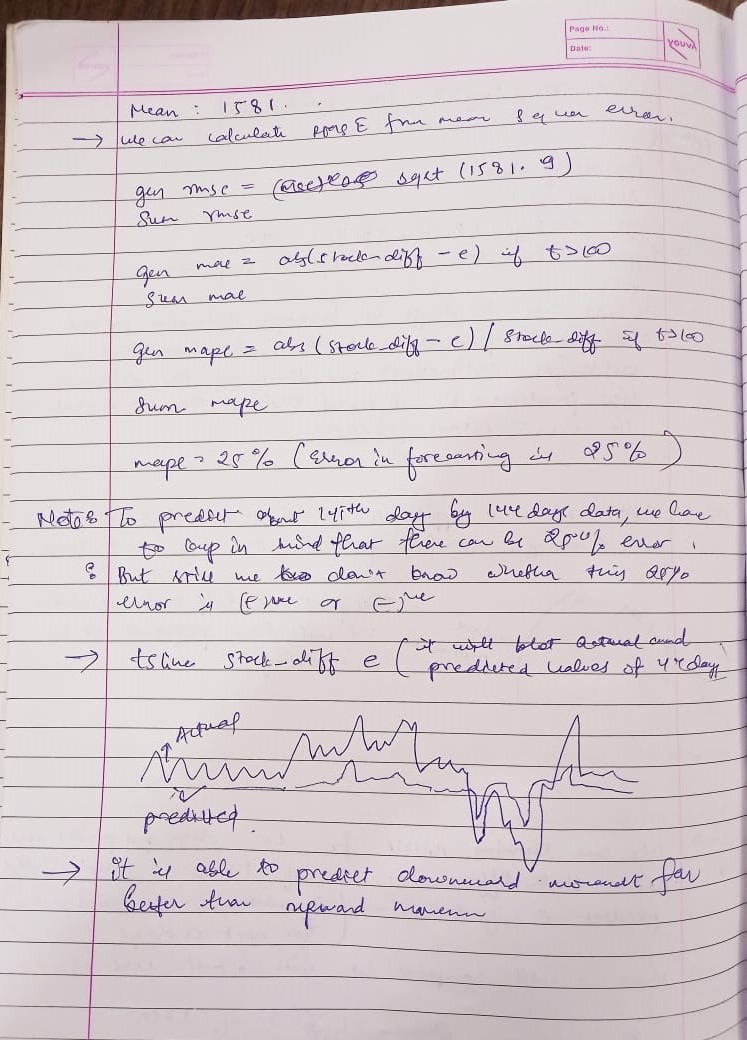 Page No.:
Date:
YOUVA
Mean : 1581.
→ we can calculate RMSE from mean square error.
gen rmse = sqrt (1581.9)
sum rmse
gen mae = abs(stock-diff - e) if t>100
sum mae
gen mape = abs (stock_diff - e) / stock_diff if t>100
sum mape
mape = 25% (error in forecasting is 25%)
Note: To predict about 145th day by 144 days data, we have
to keep in mind that there can be 25% error.
: But still we don't know whether this 25%
error is (+)ve or (-)ve
→ tsline stock_diff e (it will plot actual and
predicted values of 44 days
Actual
predicted.
→ it is able to predict downward far
better than upward